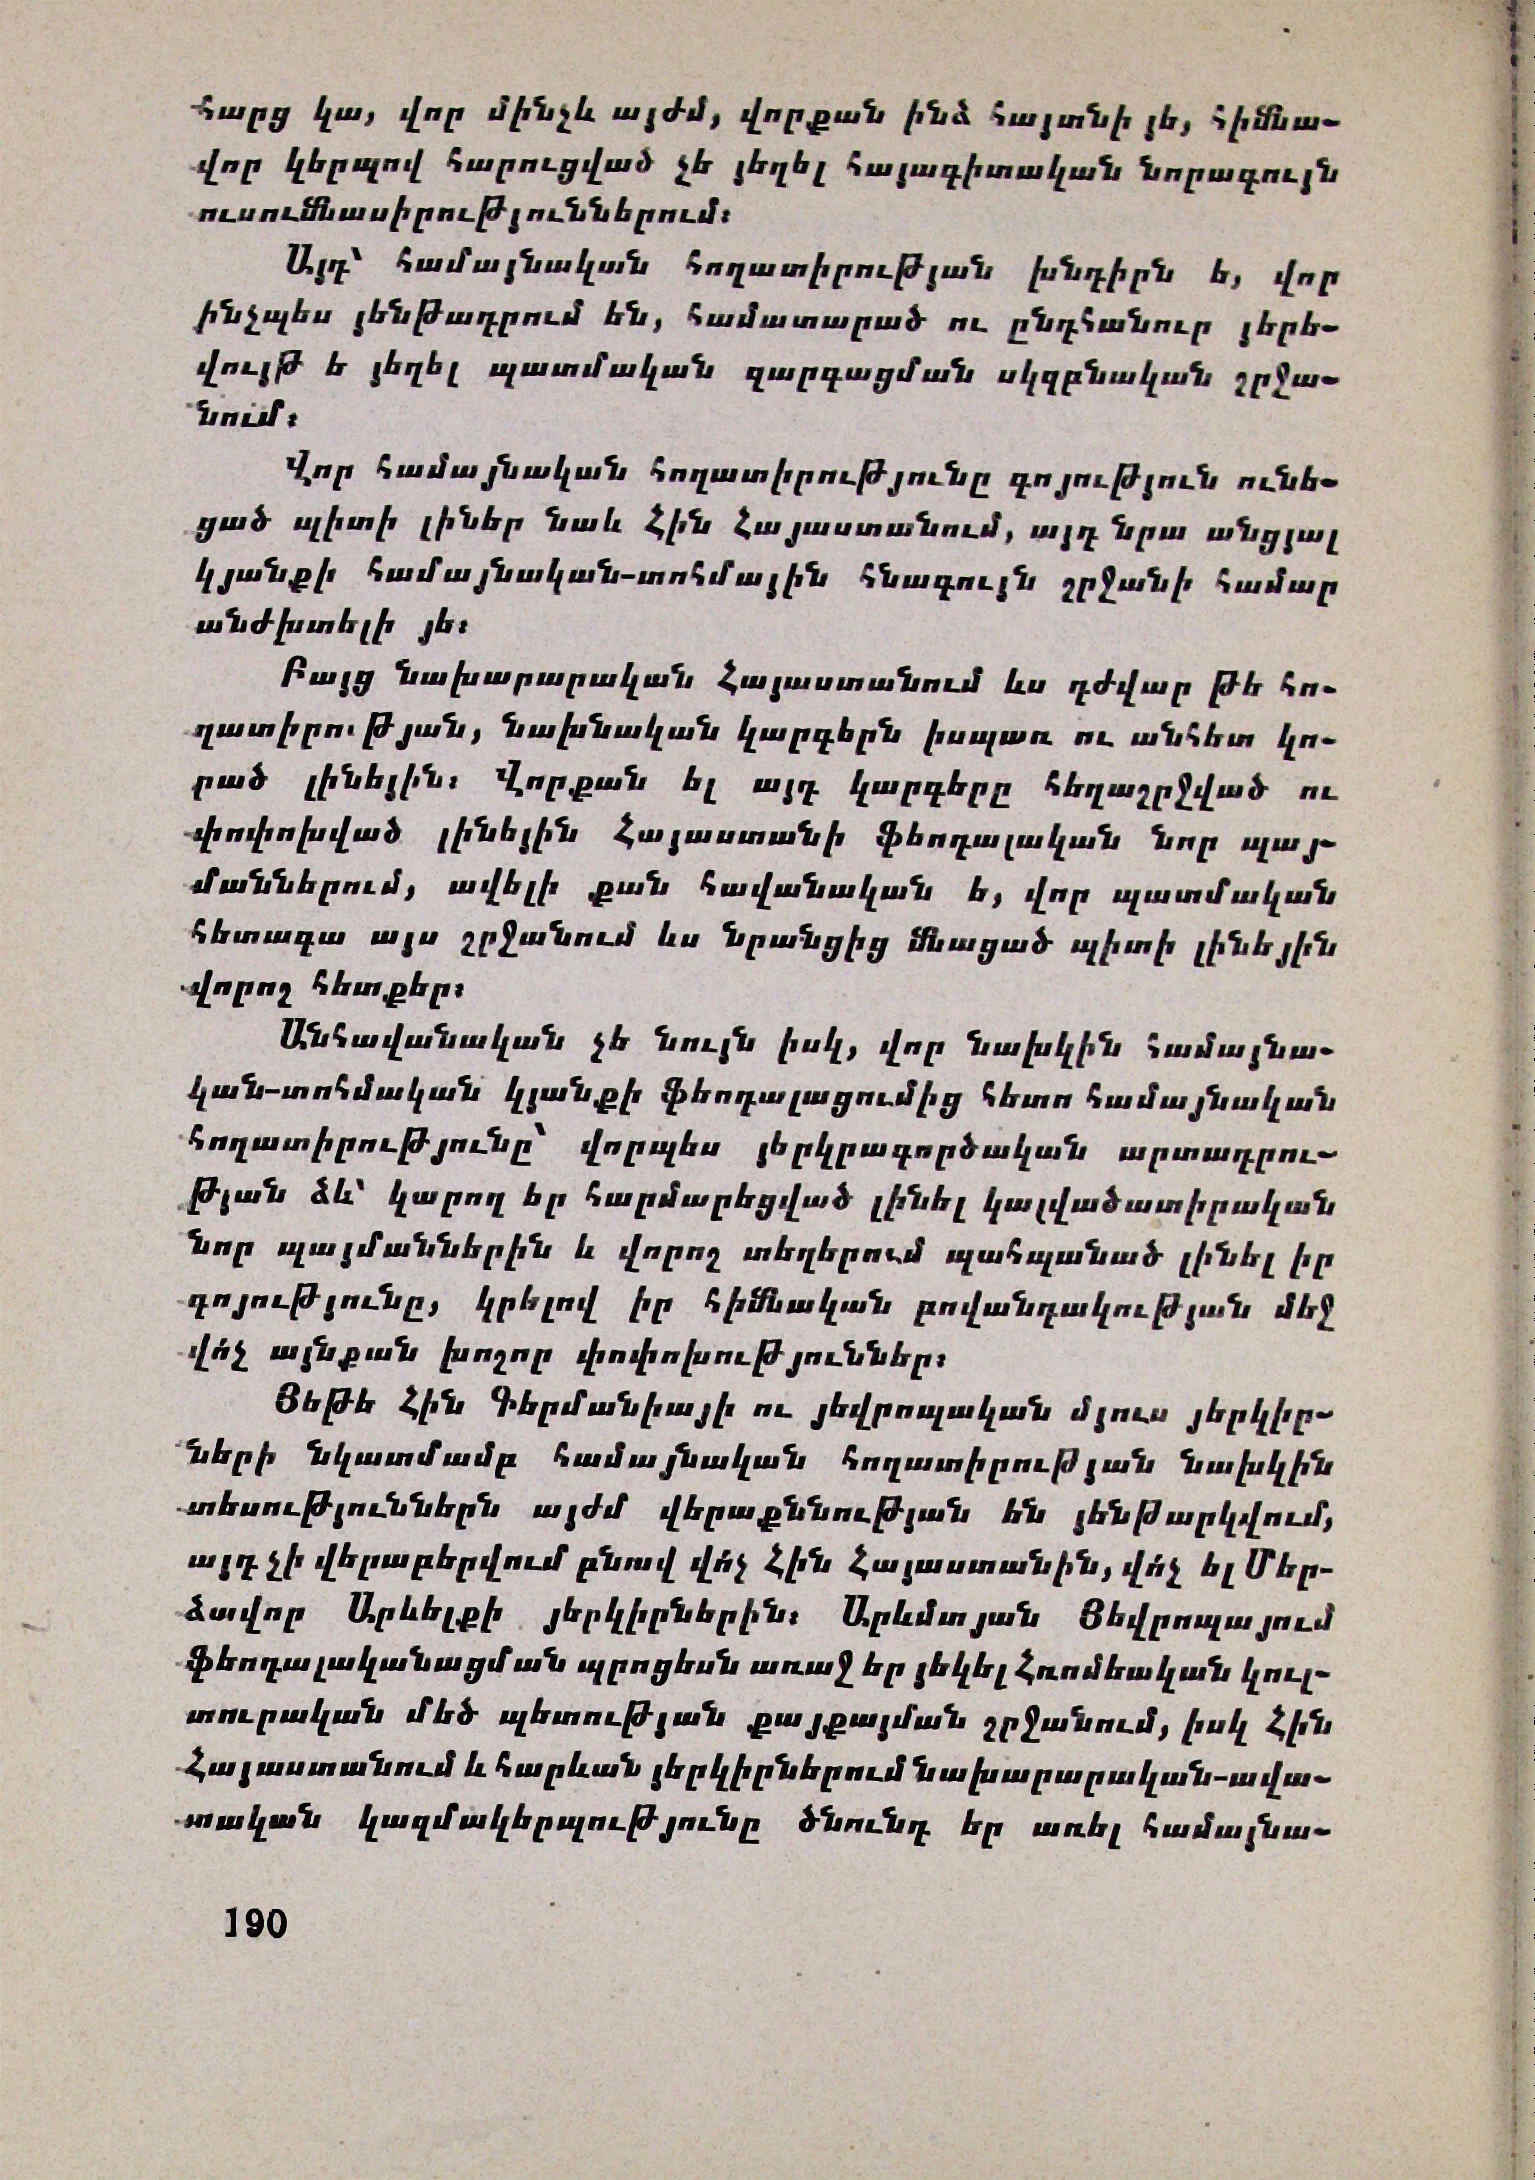 հարց կա, վոր մինչև այժմ, վորքան ինձ հայտնի յե, հիմնա-
վոր կերպով հարուցված չե յեղել հայագիտական նորագույն
ուսումնասիրություններում։
Այդ՝ համայնական հողատիրության խնդիրն ե, վոր
ինչպես յենթադրում են, համատարած ու ընդհանուր յերե-
վույթ ե յեղել պատմական զարգացման սկզբնական շրջա-
նում։
Վոր համայնական հողատիրությունը գոյություն ունե-
ցած պիտի լիներ նաև Հին Հայաստանում, այդ նրա անցյալ
կյանքի համայնական-տոհմային հնագույն շրջանի համար
անժխտելի յե։
Բայց նախարարական Հայաստանում ևս դժվար թե հո-
ղատիրության, նախնական կարգերն իսպառ ու անհետ կո-
րած լինեյին։ Վորքան ել այդ կարգերը հեղաշրջված ու
փոփոխված լինեյին Հայաստանի ֆեոդալական նոր պայ-
մաններում, ավելի քան հավանական ե, վոր պատմական
հետագա այս շրջանում ևս նրանցից մնացած պիտի լինեյին
վորոշ հետքեր։
Անհավանական չե նույն իսկ, վոր նախկին համայնա-
կան-տոհմական կյանքի ֆեոդալացումից հետո համայնական
հողատիրությունը՝ վորպես յերկրագործական արտադրու-
թյան ձև՝ կարող եր հարմարեցված լինել կալվածատիրական
նոր պայմաններին և վորոշ տեղերում պահպանած լինել իր
գոյությունը, կրելով իր հիմնական բովանդակության մեջ
վո՛չ այնքան խոշոր փոփոխություններ։
Յեթե Հին Գերմանիայի ու յեվրոպական մյուս յերկիր-
ների նկատմամբ համայնական հողատիրության նախկին
տեսություններն այժմ վերաքննության են յենթարկվում,
այդ չի վերաբերվում բնավ վո՛չ Հին Հայաստանին, վո՛չ ել Մեր-
ձավոր Արևելքի յերկիրներին։ Արևմտյան Յեվրոպայում
ֆեոդալականացման պրոցեսն առաջ եր յեկել Հռոմեական կուլ-
տուրական մեծ պետության քայքայման շրջանում, իսկ Հին
Հայաստանում և հարևան յերկիրներում նախարարական-ավա-
տական կազմակերպությունը ծնունդ եր առել համայնա-
190